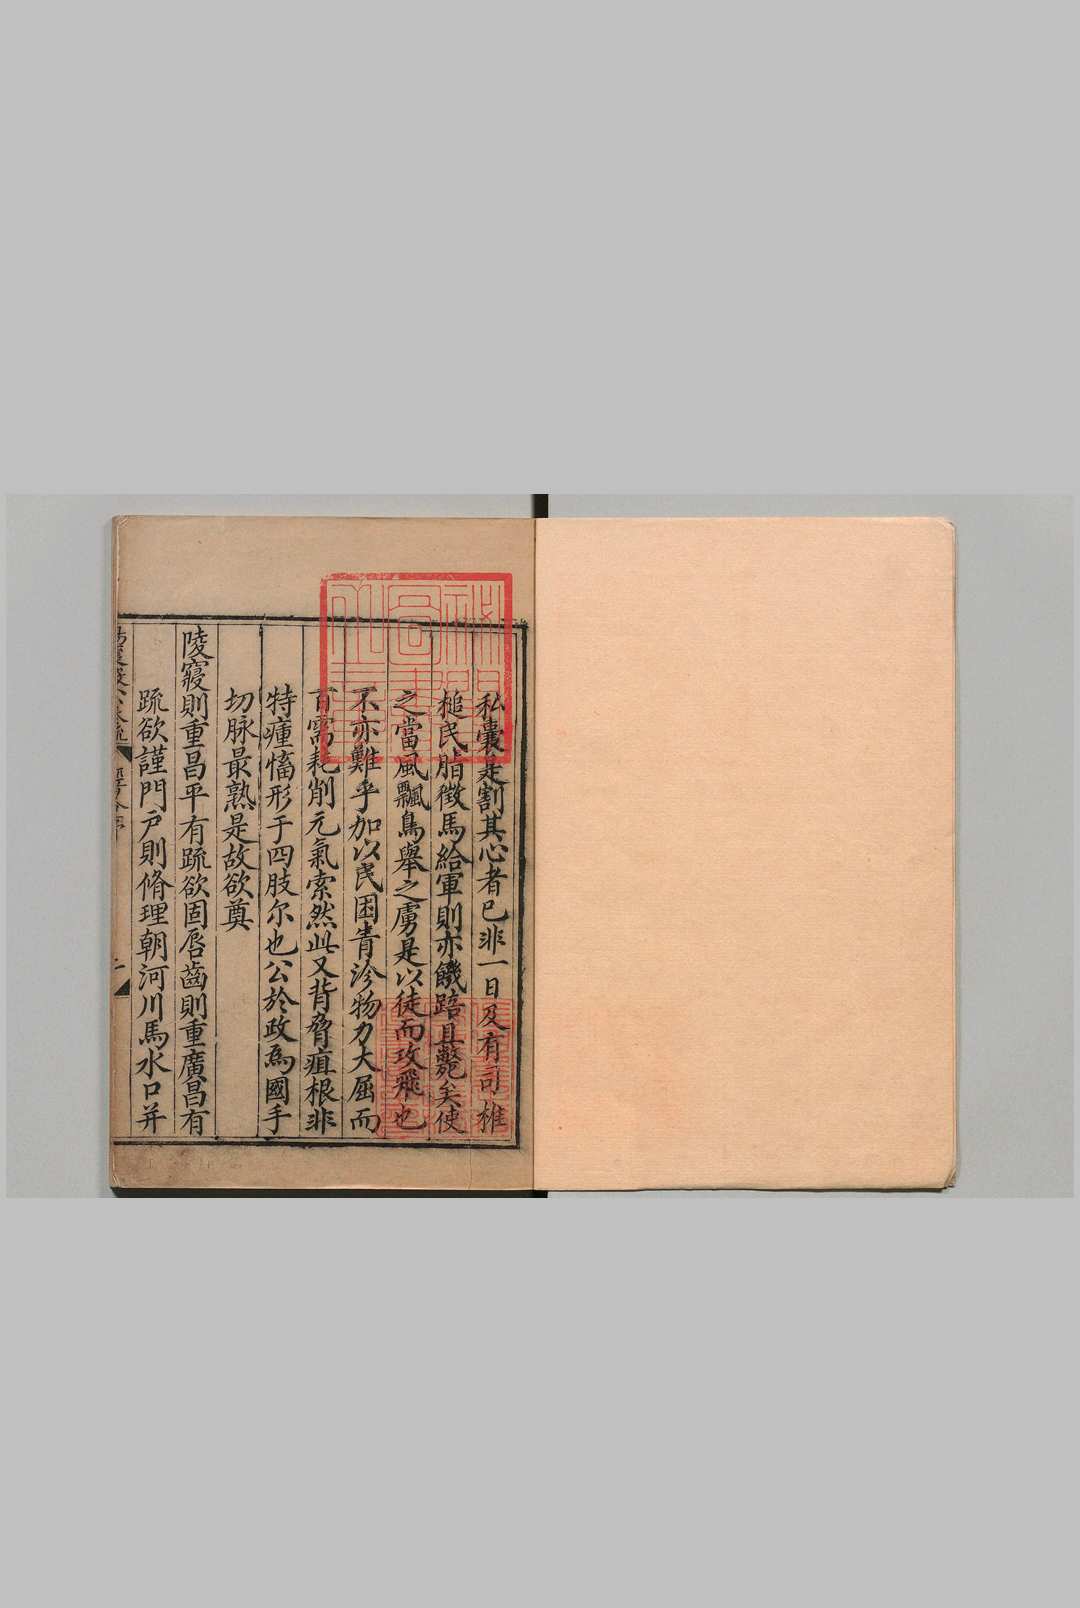 私囊是割其心者已非一日及有司椎
槌民脂徵馬給軍則亦饑踣且斃矣使
之當風飄鳥舉之虜是以徒而攻飛也
不亦難乎加以民困眚沴物力大屈而
百需耗削元氣索然此又背脅疽根非
特瘇慉形于四肢尔也公於政為國手
切脉最熟是故欲奠
陵寢則重昌平有疏欲固唇齒則重廣昌有
疏欲謹門戶則脩理朝河川馬水口并